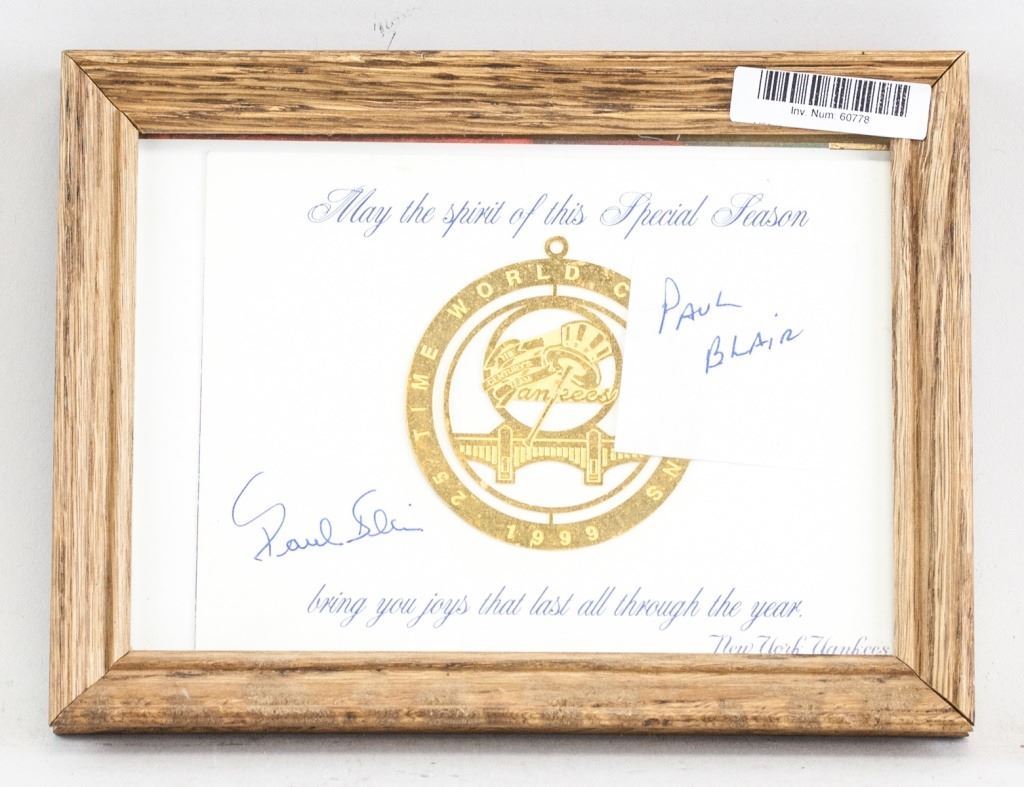 Inv. Num: 60778
May the spirit of this Special Season
25 TIME WORLD C
NS
1999
Yankees
PAUL
BLAIR
Paul Blair
bring you joys that last all through the year.
New York Yankees